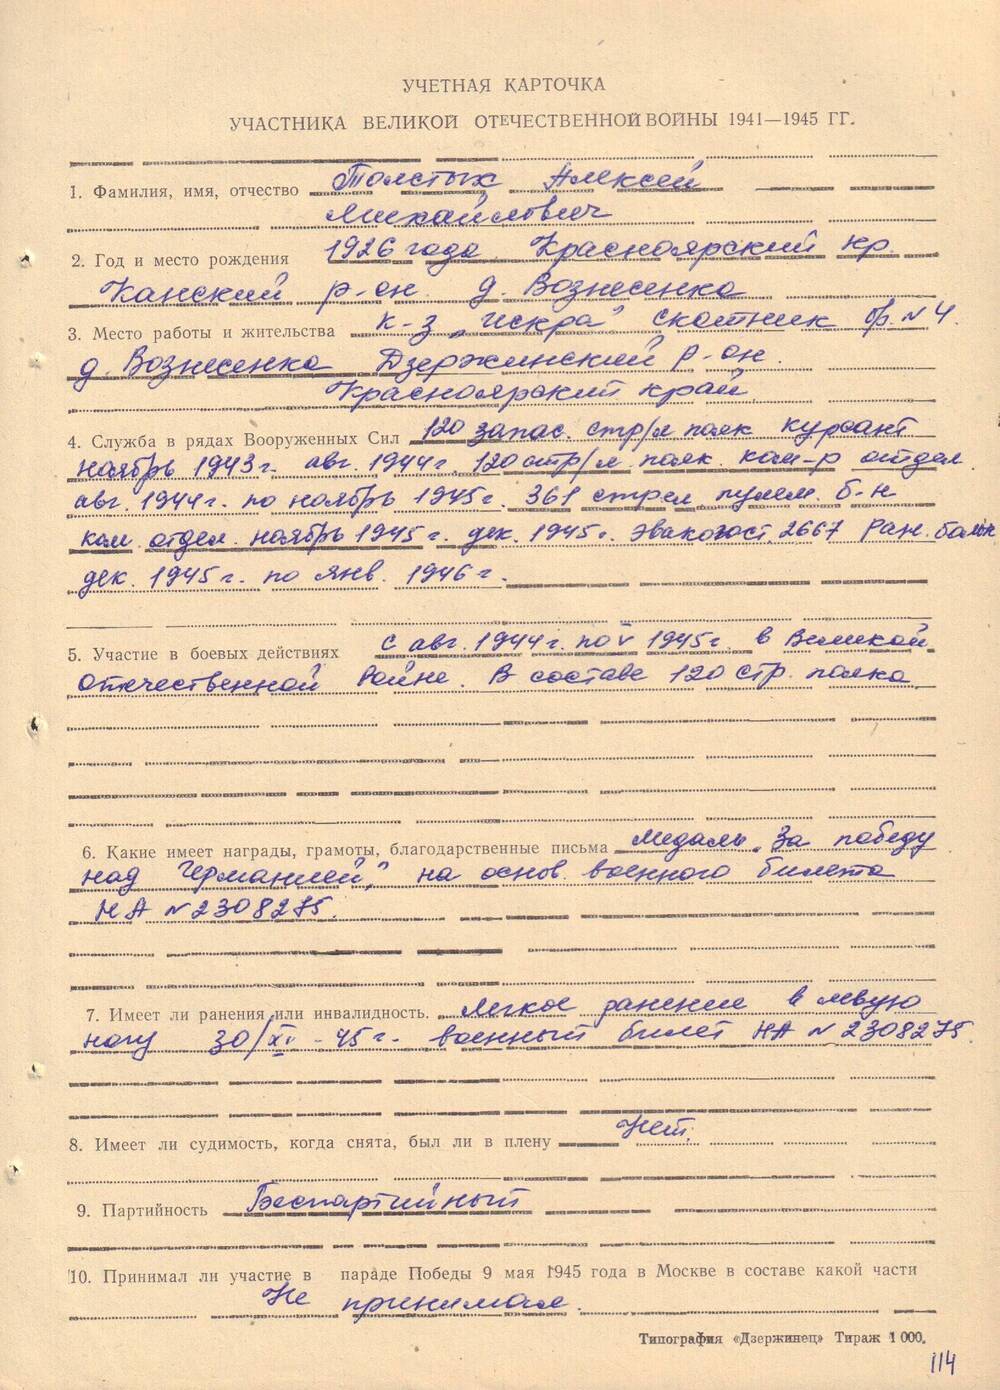 УЧЕТНАЯ КАРТОЧКА
УЧАСТНИКА ВЕЛИКОЙ ОТЕЧЕСТВЕННОЙ ВОЙНЫ 1941—1945 ГГ.
1. Фамилия, имя, отчество Толстых Алексей
Михайлович
2. Год и место рождения 1926 года Красноярский кр.
Канский р-он. д. Вознесенка
3. Место работы и жительства к-з „Искра" скотник ф. №4.
д. Вознесенка Дзержинский р-он.
Красноярский край
4. Служба в рядах Вооруженных Сил 120 запас. стр/л полк курсант
ноябрь 1943 г. авг. 1944 г. 120 стр/л. полк. ком-р отдел.
авг. 1944 г. по ноябрь 1945 г. 361 стрел пулем. б-н
ком. отдел. ноябрь 1945 г. дек. 1945 г. Эвакогосп. 2667 ран. больн.
дек. 1945 г. по янв. 1946 г.
5. Участие в боевых действиях с авг. 1944 г. по V 1945 г. в Великой
Отечественной Войне. В составе 120 стр. полка.
6. Какие имеет награды, грамоты, благодарственные письма медаль „За победу
над Германией," на основ. военного билета
НА № 2308275.
7. Имеет ли ранения или инвалидность. Легкое ранение в левую
ногу 30/XI - 45 г. военный билет НА № 2308275
8. Имеет ли судимость, когда снята, был ли в плену Нет.
9. Партийность Беспартийный
10. Принимал ли участие в параде Победы 9 мая 1945 года в Москве в составе какой части
Не принимал.
Типография «Дзержинец» Тираж 1 000.
114